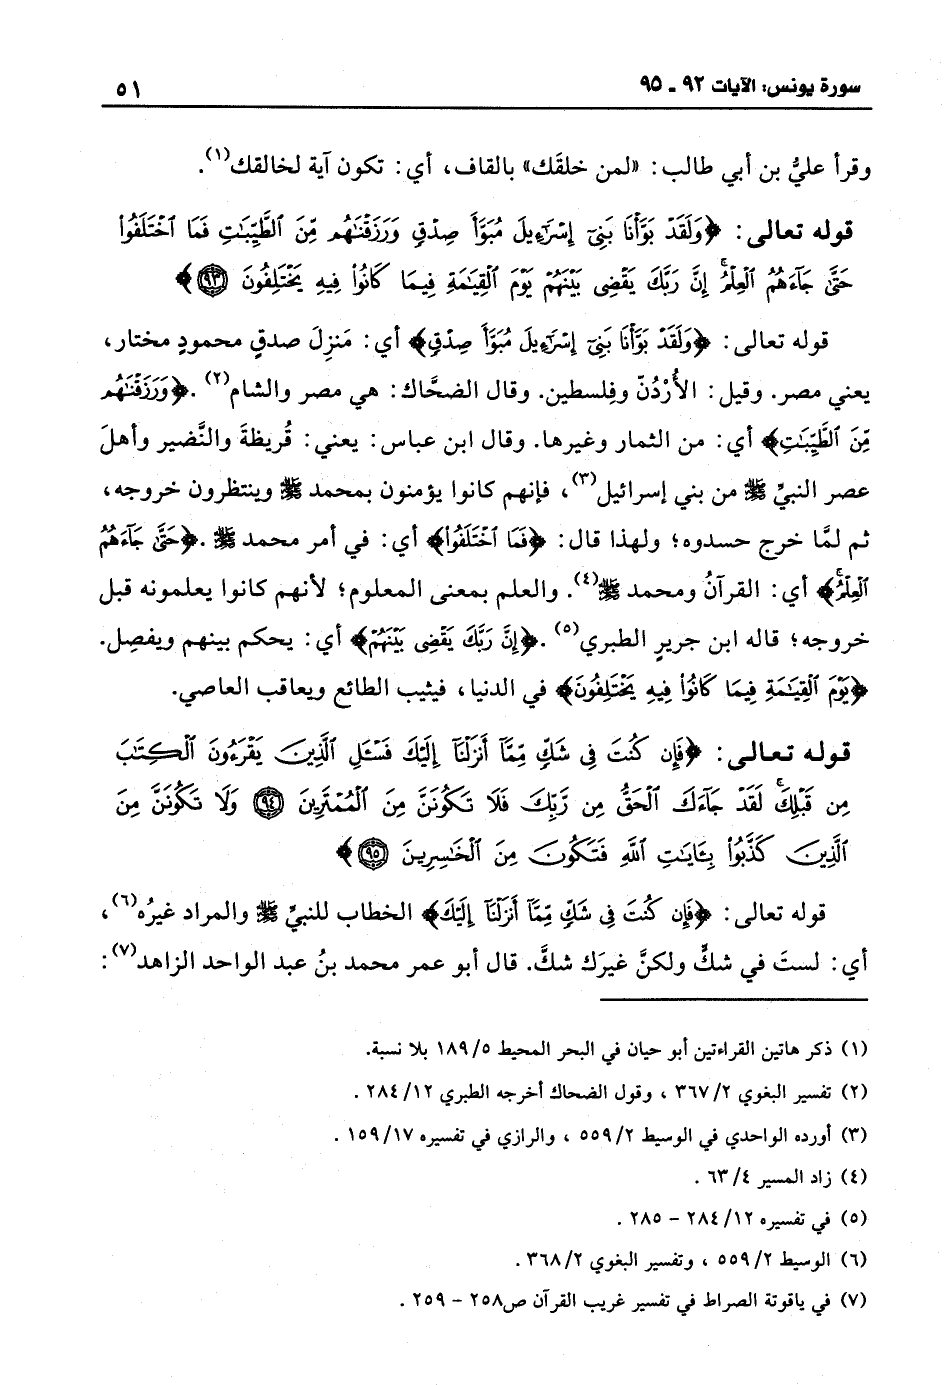 سورة يونس: الآيات ٩٢ ـ ٩٥
٥١
وقرأ عليُّ بن أبي طالب: «لمن خلقَك» بالقاف، أي: تكون آية لخالقك(١).
قوله تعالى: ﴿وَلَقَدْ بَوَّأْنَا بَنِىٓ إِسْرَٰٓءِيلَ مُبَوَّأَ صِدْقٍ وَرَزَقْنَٰهُم مِّنَ ٱلطَّيِّبَٰتِ فَمَا ٱخْتَلَفُوا۟
حَتَّىٰ جَآءَهُمُ ٱلْعِلْمُ ۚ إِنَّ رَبَّكَ يَقْضِى بَيْنَهُمْ يَوْمَ ٱلْقِيَٰمَةِ فِيمَا كَانُوا۟ فِيهِ يَخْتَلِفُونَ ٩٣﴾
قوله تعالى: ﴿وَلَقَدْ بَوَّأْنَا بَنِىٓ إِسْرَٰٓءِيلَ مُبَوَّأَ صِدْقٍ﴾ أي: مَنزِلَ صدقٍ محمودٍ مختار،
يعني مصر. وقيل: الأُرْدُنّ وفِلسطين. وقال الضحَّاك: هي مصر والشام(٢). ﴿وَرَزَقْنَٰهُم
مِّنَ ٱلطَّيِّبَٰتِ﴾ أي: من الثمار وغيرها. وقال ابن عباس: يعني: قُريظةَ والنَّضير وأهلَ
عصر النبيِّ ﷺ من بني إسرائيل(٣)، فإنهم كانوا يؤمنون بمحمد ﷺ وينتظرون خروجه،
ثم لمَّا خرج حسدوه؛ ولهذا قال: ﴿فَمَا ٱخْتَلَفُوا۟﴾ أي: في أمر محمد ﷺ. ﴿حَتَّىٰ جَآءَهُمُ
ٱلْعِلْمُ ۚ﴾ أي: القرآنُ ومحمد ﷺ(٤). والعلم بمعنى المعلوم؛ لأنهم كانوا يعلمونه قبل
خروجه؛ قاله ابن جريرٍ الطبري(٥). ﴿إِنَّ رَبَّكَ يَقْضِى بَيْنَهُمْ﴾ أي: يحكم بينهم ويفصِل.
﴿يَوْمَ ٱلْقِيَٰمَةِ فِيمَا كَانُوا۟ فِيهِ يَخْتَلِفُونَ﴾ في الدنيا، فيثيب الطائع ويعاقب العاصي.
قوله تعالى: ﴿فَإِن كُنتَ فِى شَكٍّ مِّمَّآ أَنزَلْنَآ إِلَيْكَ فَسْـَٔلِ ٱلَّذِينَ يَقْرَءُونَ ٱلْكِتَٰبَ
مِن قَبْلِكَ ۚ لَقَدْ جَآءَكَ ٱلْحَقُّ مِن رَّبِّكَ فَلَا تَكُونَنَّ مِنَ ٱلْمُمْتَرِينَ ٩٤ وَلَا تَكُونَنَّ مِنَ
ٱلَّذِينَ كَذَّبُوا۟ بِـَٔايَٰتِ ٱللَّهِ فَتَكُونَ مِنَ ٱلْخَٰسِرِينَ ٩٥﴾
قوله تعالى: ﴿فَإِن كُنتَ فِى شَكٍّ مِّمَّآ أَنزَلْنَآ إِلَيْكَ﴾ الخطاب للنبيِّ ﷺ والمراد غيرُه(٦)،
أي: لستَ في شكٍّ ولكنَّ غيرَك شكَّ. قال أبو عمر محمد بنُ عبد الواحد الزاهد(٧):
(١) ذكر هاتين القراءتين أبو حيان في البحر المحيط ١٨٩/٥ بلا نسبة.
(٢) تفسير البغوي ٣٦٧/٢ ، وقول الضحاك أخرجه الطبري ٢٨٤/١٢ .
(٣) أورده الواحدي في الوسيط ٥٥٩/٢ ، والرازي في تفسيره ١٥٩/١٧ .
(٤) زاد المسير ٦٣/٤ .
(٥) في تفسيره ٢٨٤/١٢ - ٢٨٥ .
(٦) الوسيط ٥٥٩/٢ ، وتفسير البغوي ٣٦٨/٢ .
(٧) في ياقوتة الصراط في تفسير غريب القرآن ص٢٥٨ - ٢٥٩ .